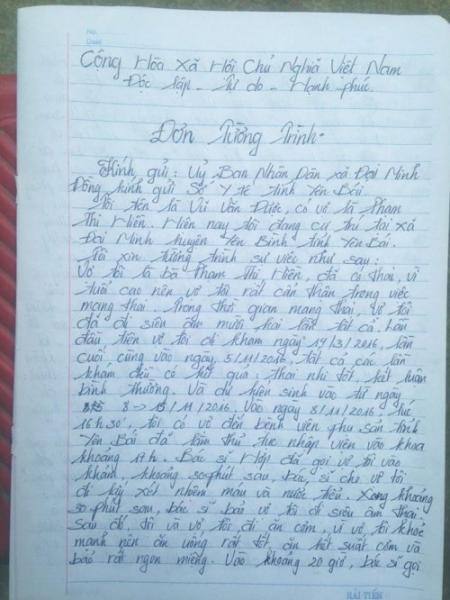 No.
Date
Cộng Hòa Xã Hội Chủ Nghĩa Việt Nam
Độc lập - Tự do - Hạnh phúc.
Đơn Tường Trình.
Kính gửi: Uỷ Ban Nhân Dân xã Đại Minh
Đồng kính gửi Sở Y tế tỉnh Yên Bái.
Tôi tên là Vũ Văn Được, có vợ là Phạm
Thị Hiên. Hiện nay tôi đang cư trú tại xã
Đại Minh huyện Yên Bình tỉnh Yên Bái.
Tôi xin tường trình sự việc như sau:
Vợ tôi là bà Phạm Thị Hiên, đã có thai, vì
tuổi cao nên vợ tôi rất cẩn thận trong việc
mang thai. Trong thời gian mang thai, vợ tôi
đã đi siêu âm mười hai lần tất cả. Lần
đầu tiên vợ tôi đi khám ngày 19/3/2016, lần
cuối cùng vào ngày 5/11/2016. tất cả các lần
khám đều có kết quả: thai nhi tốt, kết luận
bình thường. Và dự kiến sinh vào từ ngày
8 -> 15/11/2016. Vào ngày 8/11/2016, lúc
16h30', tôi có vợ đến bệnh viện phụ sản tỉnh
Yên Bái đã làm thủ tục nhập viện vào khoa
khoảng 17h. Bác sĩ Hợp đã gọi vợ tôi vào
khám, khoảng 30 phút sau, bác sĩ cho vợ tôi
đi lấy xét nhiệm máu và nước tiểu. Xong khoảng
30 phút sau, bác sĩ bảo vợ tôi đi siêu âm thai
sau đó, tôi và vợ tôi đi ăn cơm, vì vợ tôi khoẻ
mạnh nên ăn uống rất tốt ăn hết suất cơm và
bảo rất ngon miệng. Vào khoảng 20 giờ, bác sĩ gọi
HẢI TIẾN